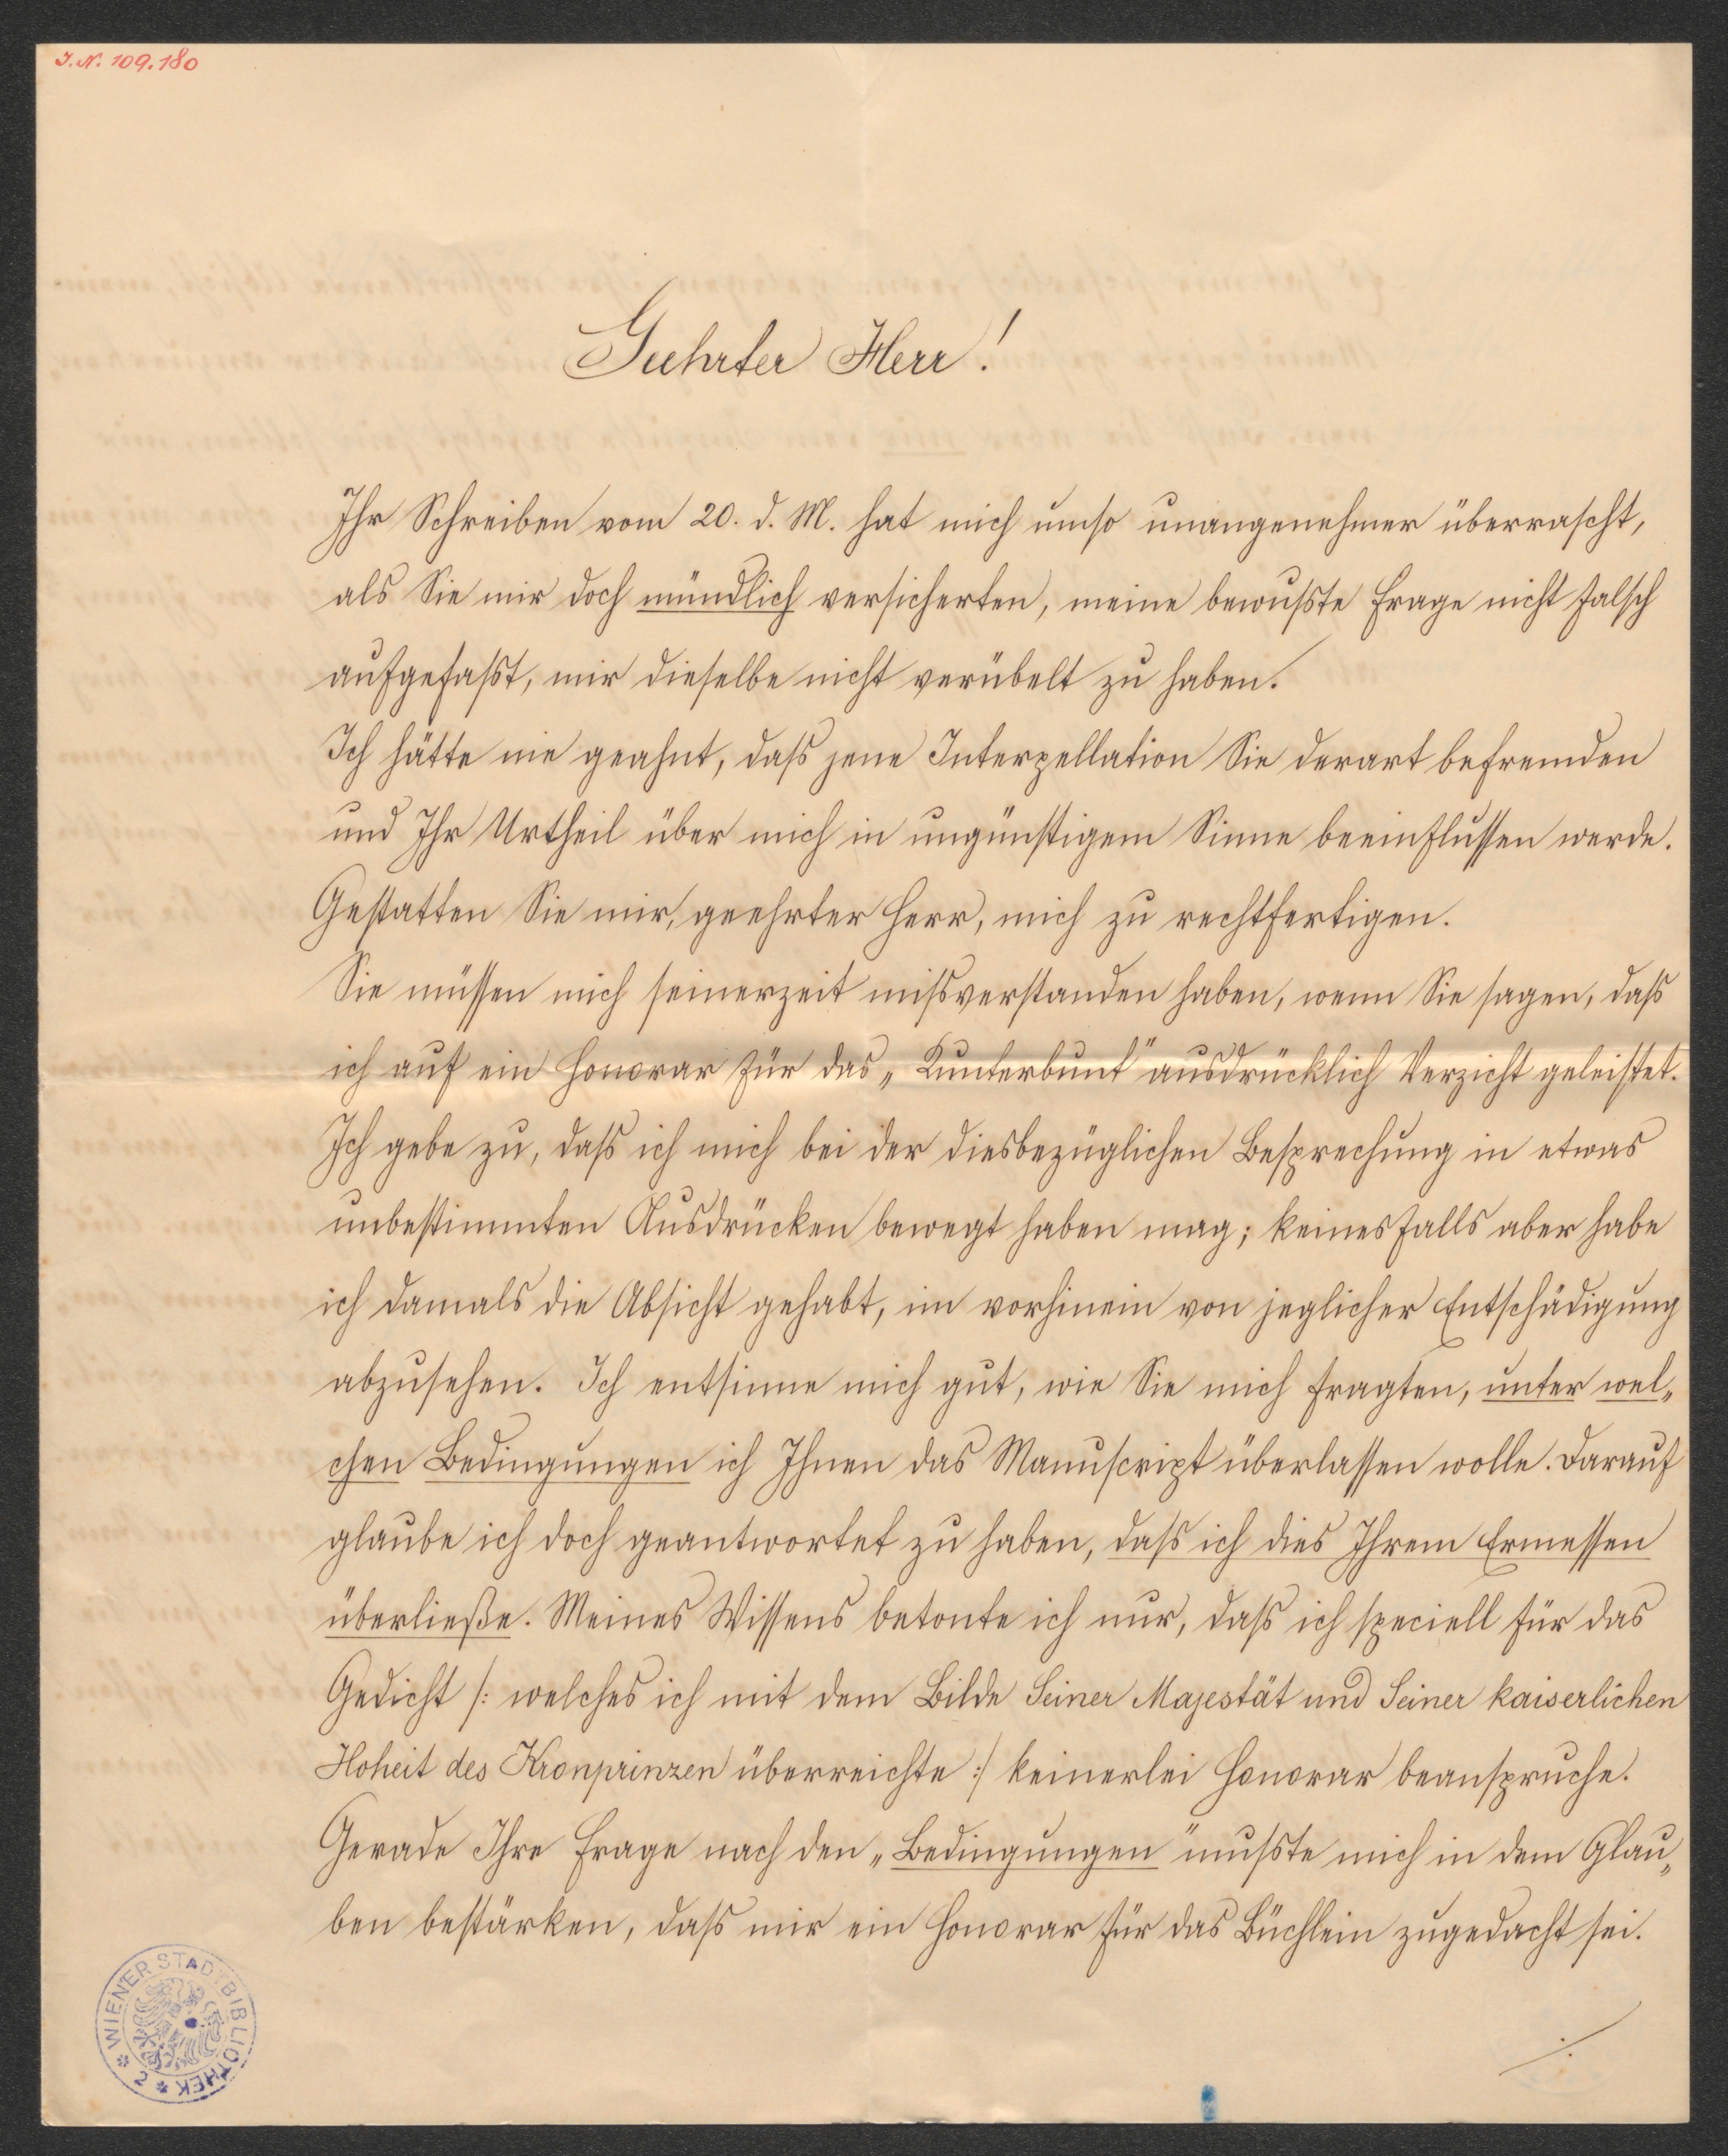 I. N. 109.180
Geehrter Herr!
Ihr Schreiben vom 20. d. M. hat mich umso unangenehmer überrascht,
als Sie mir doch mündlich versicherten, meine bewußte Frage nicht falsch
aufgefaßt, mir dieselbe nicht verübelt zu haben.
Ich hätte nie geahnt, daß jene Interpellation Sie derart befremden
und Ihr Urtheil über mich in ungünstigem Sinne beeinflussen werde.
Gestatten Sie mir, geehrter Herr, mich zu rechtfertigen.
Sie müssen mich seinerzeit mißverstanden haben, wenn Sie sagen, daß
ich auf ein Honorar für das „Kunterbunt" ausdrücklich Verzicht geleistet.
Ich gebe zu, daß ich mich bei der diesbezüglichen Besprechung in etwas
unbestimmten Ausdrücken bewegt haben mag; keinesfalls aber habe
ich damals die Absicht gehabt, im vorhinein von jeglicher Entschädigung
abzusehen. Ich entsinne mich gut, wie Sie mich fragten, unter wel„
chen Bedingungen ich Ihnen das Manuscript überlassen wolle. Darauf
glaube ich doch geantwortet zu haben, daß ich dies Ihrem Ermessen
überließe. Meines Wissens betonte ich nur, daß ich speciell für das
Gedicht /: welches ich mit dem Bilde Seiner Majestät und Seiner kaiserlichen
Hoheit des Kronprinzen überreichte :/ keinerlei Honorar beanspruche.
Gerade Ihre Frage nach den „Bedingungen" mußte mich in dem Glau„
ben bestärken, daß mir ein Honorar für das Büchlein zugedacht sei.
./.
WIENER STADTBIBLIOTHEK * 2 *